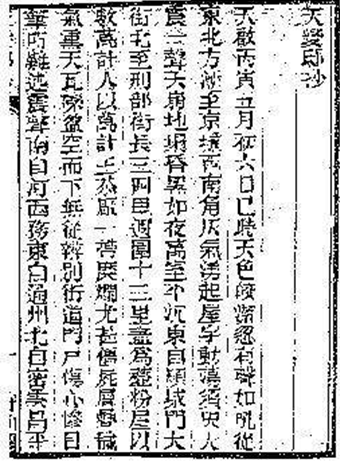 天變邸抄
天啟丙寅五月初六日巳時天色皎潔忽有聲如吼從
東北方漸至京城西南角灰氣湧起屋宇動蕩須臾大
震一聲天崩地塌昏黑如夜萬室平沉東自順城門大
街北至刑部街長三四里週圍十三里盡為虀粉屋以
數萬計人以萬計王恭廠一帶糜爛尤甚僵屍層疊穢
氣熏天瓦礫盈空而下無從辨別街道門戶傷心慘目
筆所難述震聲南自河西務東自通州北自密雲昌平